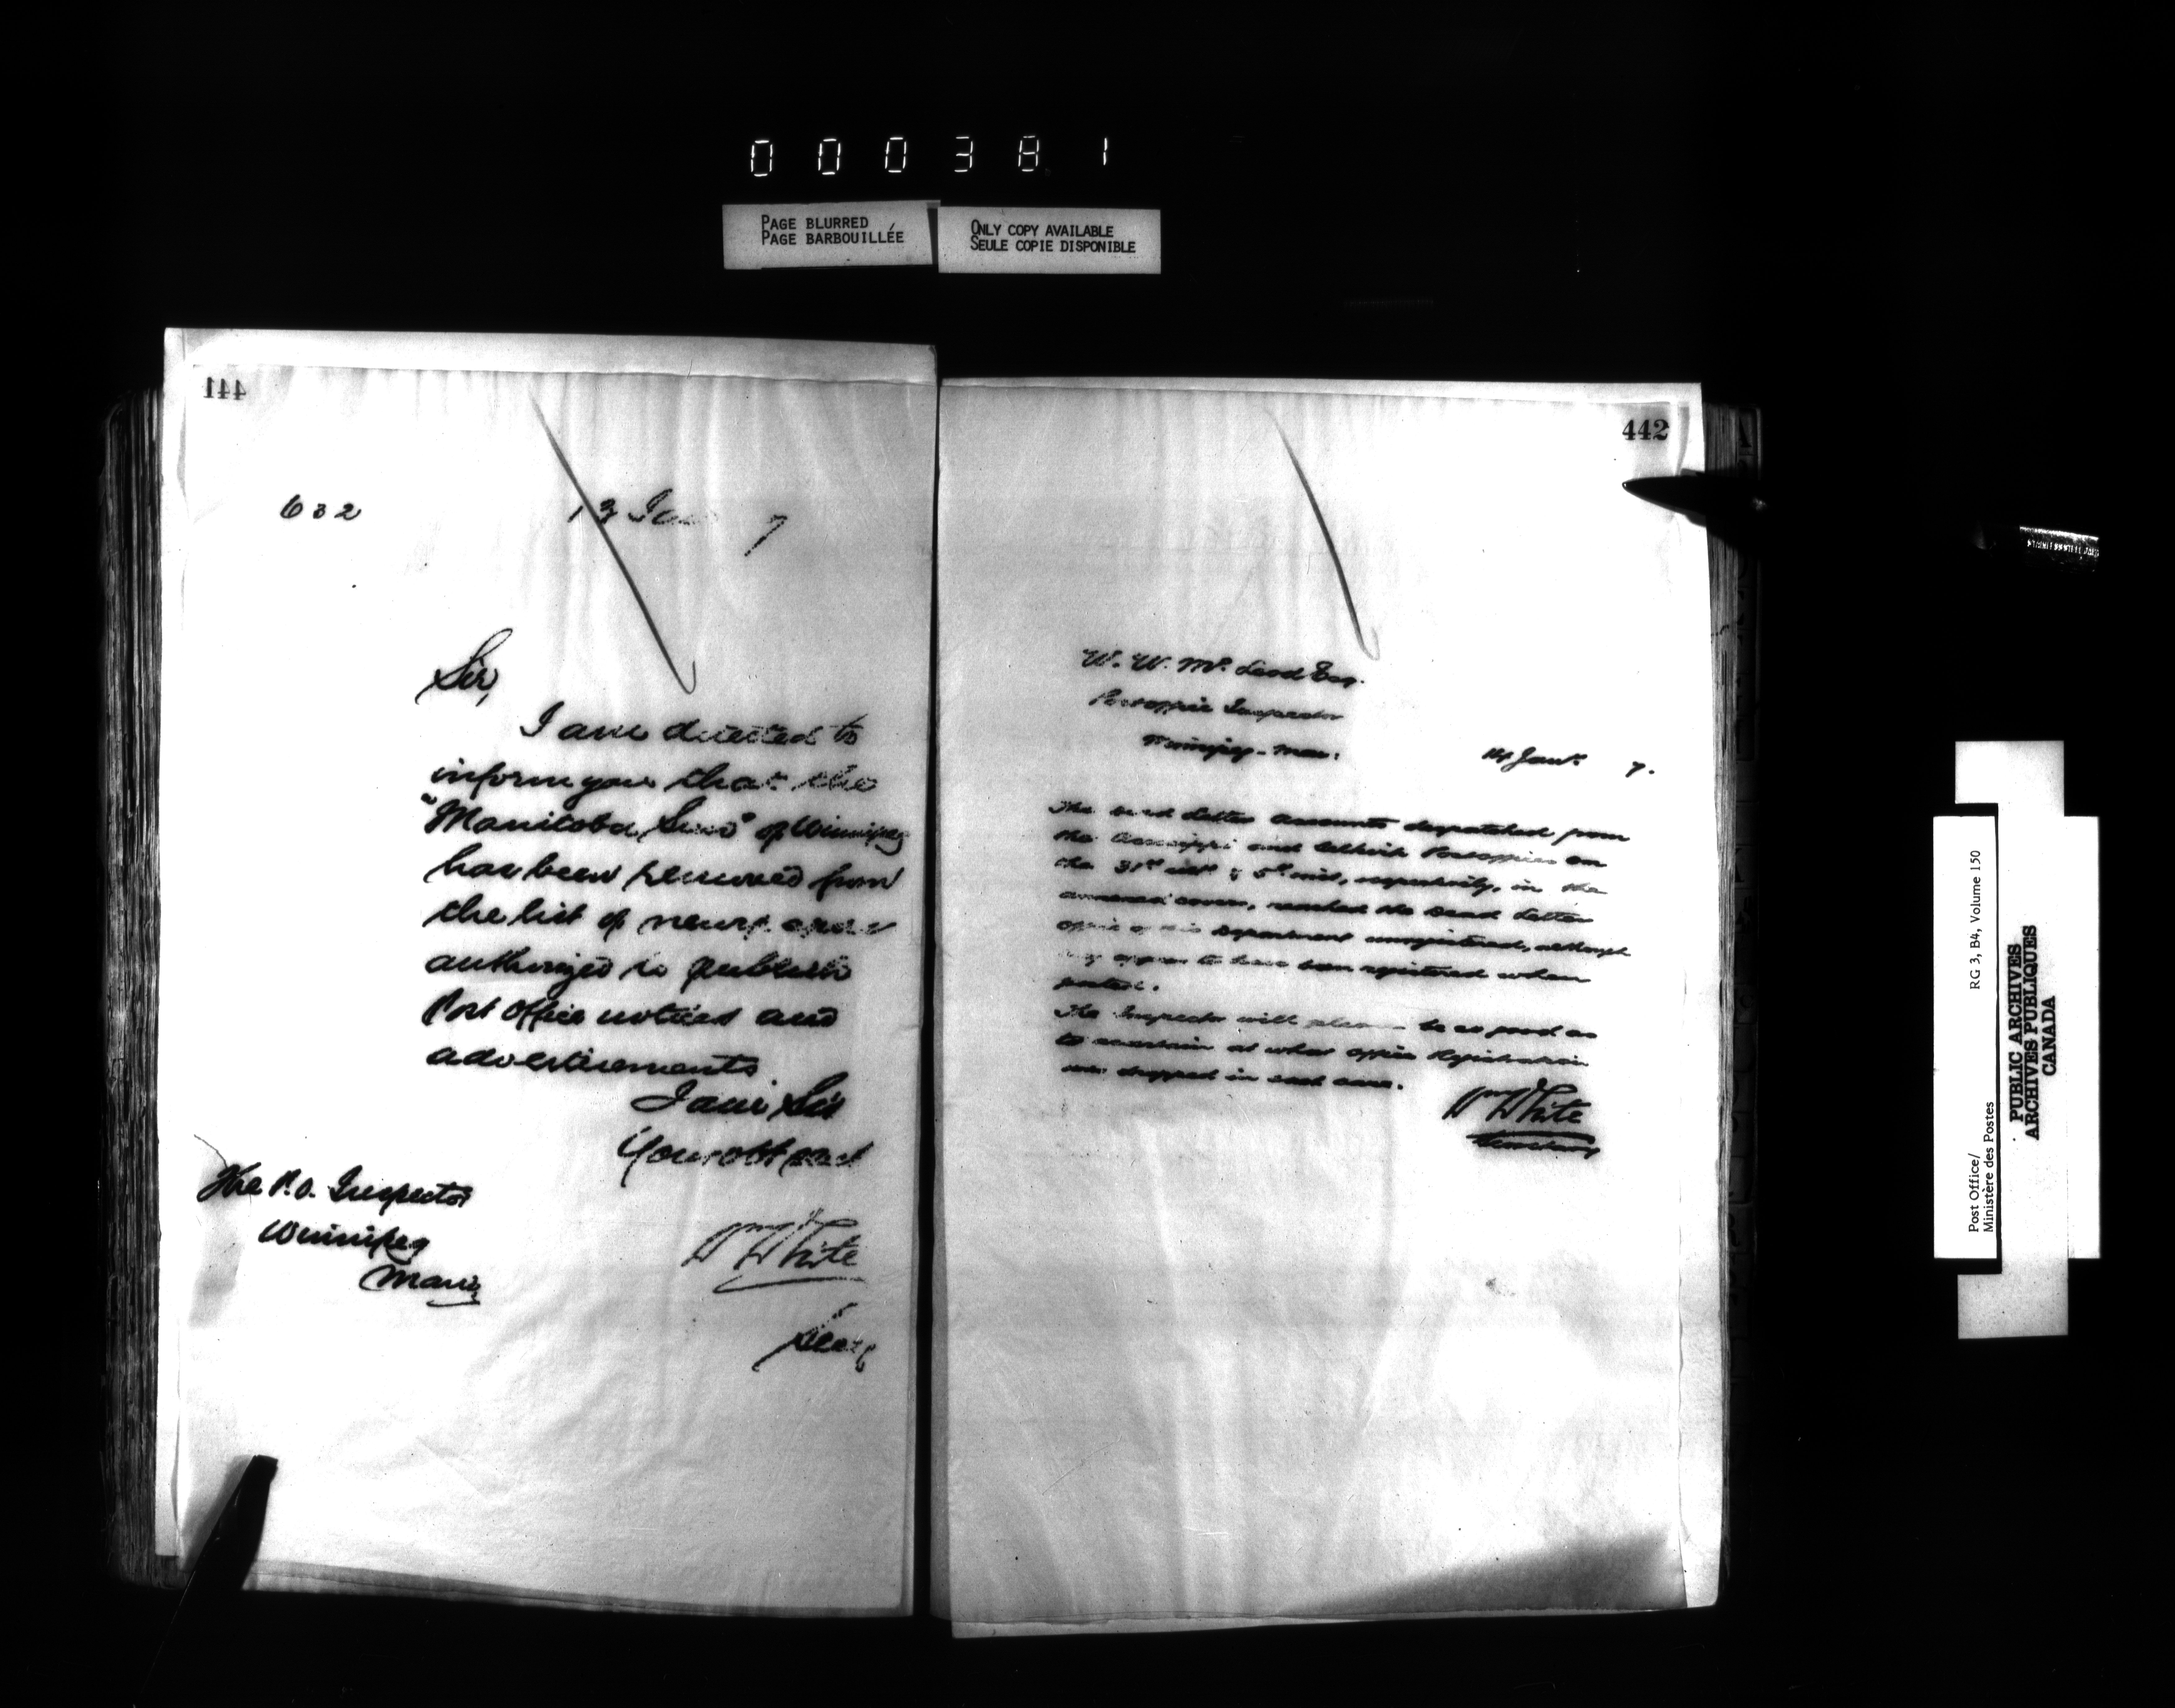 000381
PAGE BLURRED
PAGE BARBOUILLÉE
ONLY COPY AVAILABLE
SEULE COPIE DISPONIBLE
441
632
13 Jan 7
Sir,
I am directed to
inform you that the
"Manitoba Sun" of Winnipeg
has been removed from
the list of newspapers
authorized to publish
Post Office notices and
advertisements
I am Sir
Your obt servt
The P.O. Inspector
Winnipeg
Man
Wm White
Secy
442
W. W. McLeod Esq.
Postoffice Inspector
Winnipeg - Man:
14 Jany. 7.
The Dead Letter Accounts despatched from
the and Selkirk Postoffices on
the 31st ult & 5th inst, respectively, in the
annexed covers, reached the Dead Letter
Office of this Department unregistered, although
they appear to have been registered when
posted.
The Inspector will please be so good as
to ascertain at what office Registration
was dropped in each case.
Wm White
Secretary
Post Office/
Ministère des Postes
RG 3, B4, Volume 150
PUBLIC ARCHIVES
ARCHIVES PUBLIQUES
CANADA